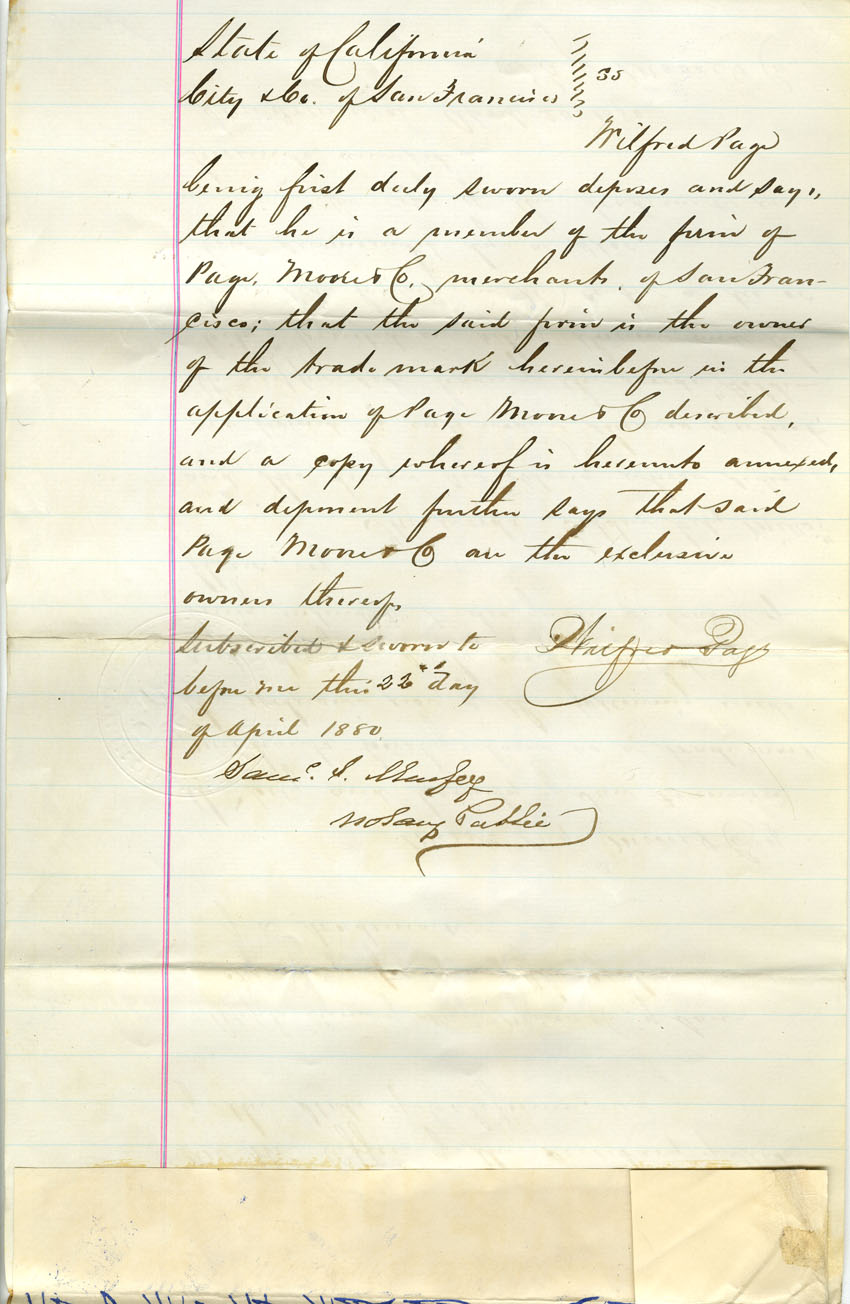 State of California
City & Co. of San Francisco } ss
Wilfred Page
being first duly sworn deposes and says,
that he is a member of the firm of
Page, Moore & Co, merchants, of San Fran-
cisco; that the said firm is the owner
of the trade mark hereinbefore in the
application of Page Moore & Co described,
and a copy whereof is hereunto annexed,
and deponent further says that said
Page Moore & Co are the exclusive
owners thereof.
Subscribed & sworn to
before me this 22nd day
of April 1880.
Wilfred Page
Saml. S.
Notary Public